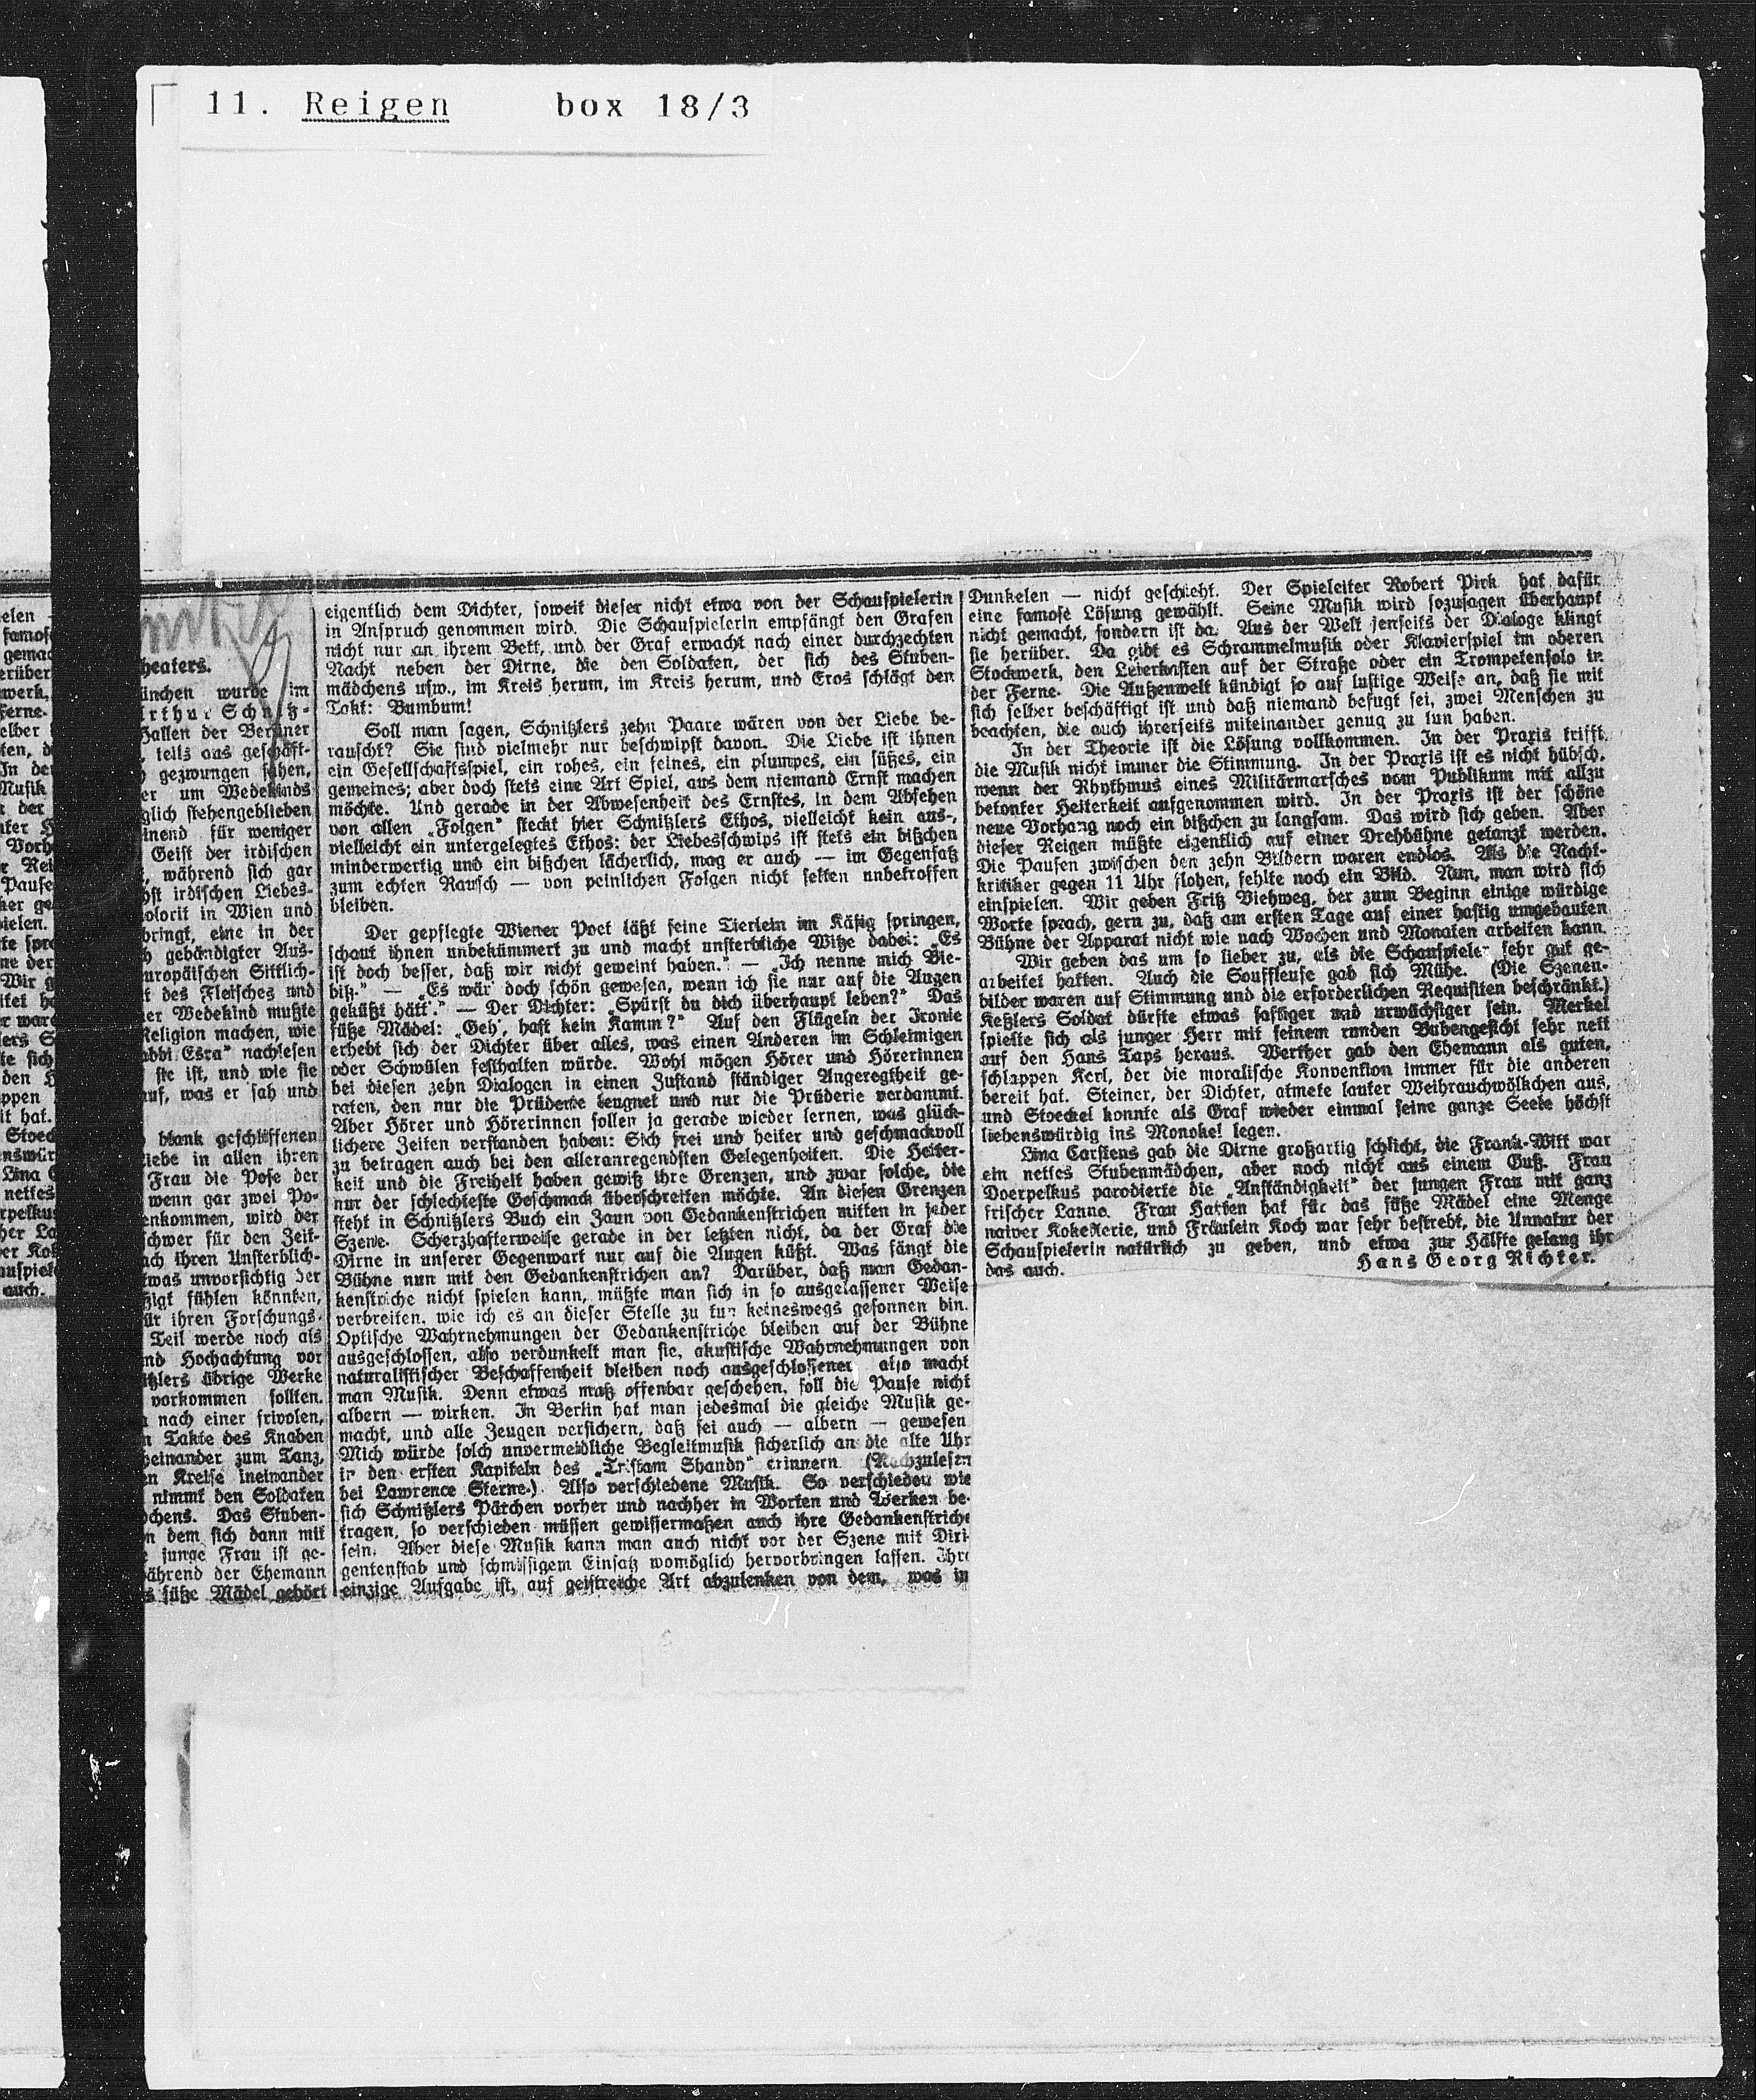 11. Reigen box 18/3
elen
famos
gemac
erüber
werk,
Ferne.
elber
ten, d
In der
Musik
t der
Vorh
r Rei
Pause
ker ge
ielen.
te spro
ne der
Wir g
itet ha
r ware
lers S
te sich
den H
ppen
it hat.
Stoec
nswür
Lina C
nettes
rpelkus
her La
er Kok
auspiel
auch.
heaters.
ünchen wurde im
Arthur Schnitz-
Hallen der Berliner
, teils aus geschäft-
gezwungen sahen,
er um Wedekinds
glich stehengeblieben
inend für weniger
Geist der irdischen
, während sich gar
bst irdischen Liebes-
olorit in Wien und
bringt, eine in der
h gebändigter Aus-
uropäischen Sittlich-
t des Fleisches und
her Wedekind mußte
Religion machen, wie
abbi Esra“ nachlesen
sie ist, und wie sie
auf, was er sah und
blank geschliffenen
Liebe in allen ihren
Frau die Pose der
wenn gar zwei Po-
enkommen, wird der
schwer für den Zeit-
ach ihren Unsterblich-
twas unvorsichtig der
zigt fühlen könnten,
ür ihren Forschungs-
Teil werde noch als
nd Hochachtung vor
itzlers übrige Werke
vorkommen sollten.
nach einer frivolen,
n Takte des Knaben
beinander zum Tanz,
en Kreise ineinander
nimmt den Soldaten
dchens. Das Stuben-
n dem sich dann mit
e junge Frau ist ge-
ährend der Ehemann
s süße Mädel gehört
eigentlich dem Dichter, soweit dieser nicht etwa von der Schauspielerin
in Anspruch genommen wird. Die Schauspielerin empfängt den Grafen
nicht nur an ihrem Bett, und der Graf erwacht nach einer durchzechten
Nacht neben der Dirne, die den Soldaten, der sich des Stuben-
mädchens usw., im Kreis herum, im Kreis herum, und Eros schlägt den
Takt: Bumbum!
Soll man sagen, Schnitzlers zehn Paare wären von der Liebe be-
rauscht? Sie sind vielmehr nur beschwipst davon. Die Liebe ist ihnen
ein Gesellschaftsspiel, ein rohes, ein feines, ein plumpes, ein süßes, ein
gemeines; aber doch stets eine Art Spiel, aus dem niemand Ernst machen
möchte. Und gerade in der Abwesenheit des Ernstes, in dem Absehen
von allen „Folgen“ steckt hier Schnitzlers Ethos, vielleicht kein aus-,
vielleicht ein untergelegtes Ethos: der Liebesschwips ist stets ein bißchen
minderwertig und ein bißchen lächerlich, mag er auch — im Gegensatz
zum echten Rausch — von peinlichen Folgen nicht selten unbetroffen
bleiben.
Der gepflegte Wiener Poet läßt seine Tierlein im Käfig springen,
schaut ihnen unbekümmert zu und macht unsterbliche Witze dabei: „Es
ist doch besser, daß wir nicht geweint haben.“ — „Ich nenne mich Bie-
biß.“ — „Es wär' doch schön gewesen, wenn ich sie nur auf die Augen
geküßt hätt'.“ — Der Dichter: „Spürst du dich überhaupt leben?“ Das
süße Mädel: „Geh', hast kein Kamm?“ Auf den Flügeln der Ironie
erhebt sich der Dichter über alles, was einen Anderen im Schleimigen
oder Schwülen festhalten würde. Wohl mögen Hörer und Hörerinnen
bei diesen zehn Dialogen in einen Zustand ständiger Angeregtheit ge-
raten, den nur die Prüderie leugnet und nur die Prüderie verdammt.
Aber Hörer und Hörerinnen sollen ja gerade wieder lernen, was glück-
lichere Zeiten verstanden haben: Sich frei und heiter und geschmackvoll
zu betragen auch bei den alleranregendsten Gelegenheiten. Die Heiter-
keit und die Freiheit haben gewiß ihre Grenzen, und zwar solche, die
nur der schlechteste Geschmack überschreiten möchte. An diesen Grenzen
steht in Schnitzlers Buch ein Zaun von Gedankenstrichen mitten in jeder
Szene. Scherzhafterweise gerade in der letzten nicht, da der Graf die
Dirne in unserer Gegenwart nur auf die Augen küßt. Was fängt die
Bühne nun mit den Gedankenstrichen an? Darüber, daß man Gedan-
kenstriche nicht spielen kann, müßte man sich in so ausgelassener Weise
verbreiten, wie ich es an dieser Stelle zu tun keineswegs gesonnen bin.
Optische Wahrnehmungen der Gedankenstriche bleiben auf der Bühne
ausgeschlossen, also verdunkelt man sie, akustische Wahrnehmungen von
naturalistischer Beschaffenheit bleiben noch ausgeschlossener also macht
man Musik. Denn etwas muß offenbar geschehen, soll die Pause nicht
albern — wirken. In Berlin hat man jedesmal die gleiche Musik ge-
macht, und alle Zeugen versichern, daß sei auch — albern — gewesen
Mich würde solch unvermeidliche Begleitmusik sicherlich an die alte Uhr
in den ersten Kapiteln des „Tristam Shandy“ erinnern (Nachzulesen
bei Lawrence Sterne.) Also verschiedene Musik. So verschieden wie
sich Schnitzlers Pärchen vorher und nachher in Worten und Werken be-
tragen, so verschieden müssen gewissermaßen auch ihre Gedankenstriche
sein. Aber diese Musik kann man auch nicht vor der Szene mit Diri-
gentenstab und schmissigem Einsatz womöglich hervorbringen lassen. Ihre
einzige Aufgabe ist, auf geistreiche Art abzulenken von dem, was in
Dunkelen — nicht geschieht. Der Spieleiter Robert Pirk hat dafür
eine famose Lösung gewählt. Seine Musik wird sozusagen überhaupt
nicht gemacht, sondern ist da. Aus der Welt jenseits der Dialoge klingt
sie herüber. Da gibt es Schrammelmusik oder Klavierspiel im oberen
Stockwerk, den Leierkasten auf der Straße oder ein Trompetensolo in
der Ferne. Die Außenwelt kündigt so auf lustige Weise an, daß sie mit
sich selber beschäftigt ist und daß niemand befugt sei, zwei Menschen zu
beachten, die auch ihrerseits miteinander genug zu tun haben.
In der Theorie ist die Lösung vollkommen. In der Praxis trifft
die Musik nicht immer die Stimmung. In der Praxis ist es nicht hübsch,
wenn der Rhythmus eines Militärmarsches vom Publikum mit allzu
betonter Heiterkeit aufgenommen wird. In der Praxis ist der schöne
neue Vorhang noch ein bißchen zu langsam. Das wird sich geben. Aber
dieser Reigen müßte eigentlich auf einer Drehbühne getanzt werden.
Die Pausen zwischen den zehn Bildern waren endlos. Als die Nacht-
kritiker gegen 11 Uhr flohen, fehlte noch ein Bild. Nun, man wird sich
einspielen. Wir geben Fritz Viehweg, der zum Beginn einige würdige
Worte sprach, gern zu, daß am ersten Tage auf einer hastig umgebauten
Bühne der Apparat nicht wie nach Wochen und Monaten arbeiten kann.
Wir geben das um so lieber zu, als die Schauspieler sehr gut ge-
arbeitet hatten. Auch die Souffleuse gab sich Mühe. (Die Szenen-
bilder waren auf Stimmung und die erforderlichen Requisiten beschränkt.)
Keßlers Soldat dürfte etwas saftiger und urwüchsiger sein. Merkel
spielte sich als junger Herr mit seinem runden Bubengesicht sehr nett
auf den Hans Taps heraus. Werther gab den Ehemann als guten,
schlappen Kerl, der die moralische Konvention immer für die anderen
bereit hat. Steiner, der Dichter, atmete lauter Weihrauchwölkchen aus,
und Stoeckel konnte als Graf wieder einmal seine ganze Seele höchst
liebenswürdig ins Monokel legen.
Lina Carstens gab die Dirne großartig schlicht, die Frank-Witt war
ein nettes Stubenmädchen, aber noch nicht aus einem Guß. Frau
Doerpelkus parodierte die „Anständigkeit“ der jungen Frau mit ganz
frischer Laune. Frau Harben hat für das süße Mädel eine Menge
naiver Koketterie, und Fräulein Koch war sehr bestrebt, die Unnatur der
Schauspielerin natürlich zu geben, und etwa zur Hälfte gelang ihr
das auch.
Hans Georg Richter.